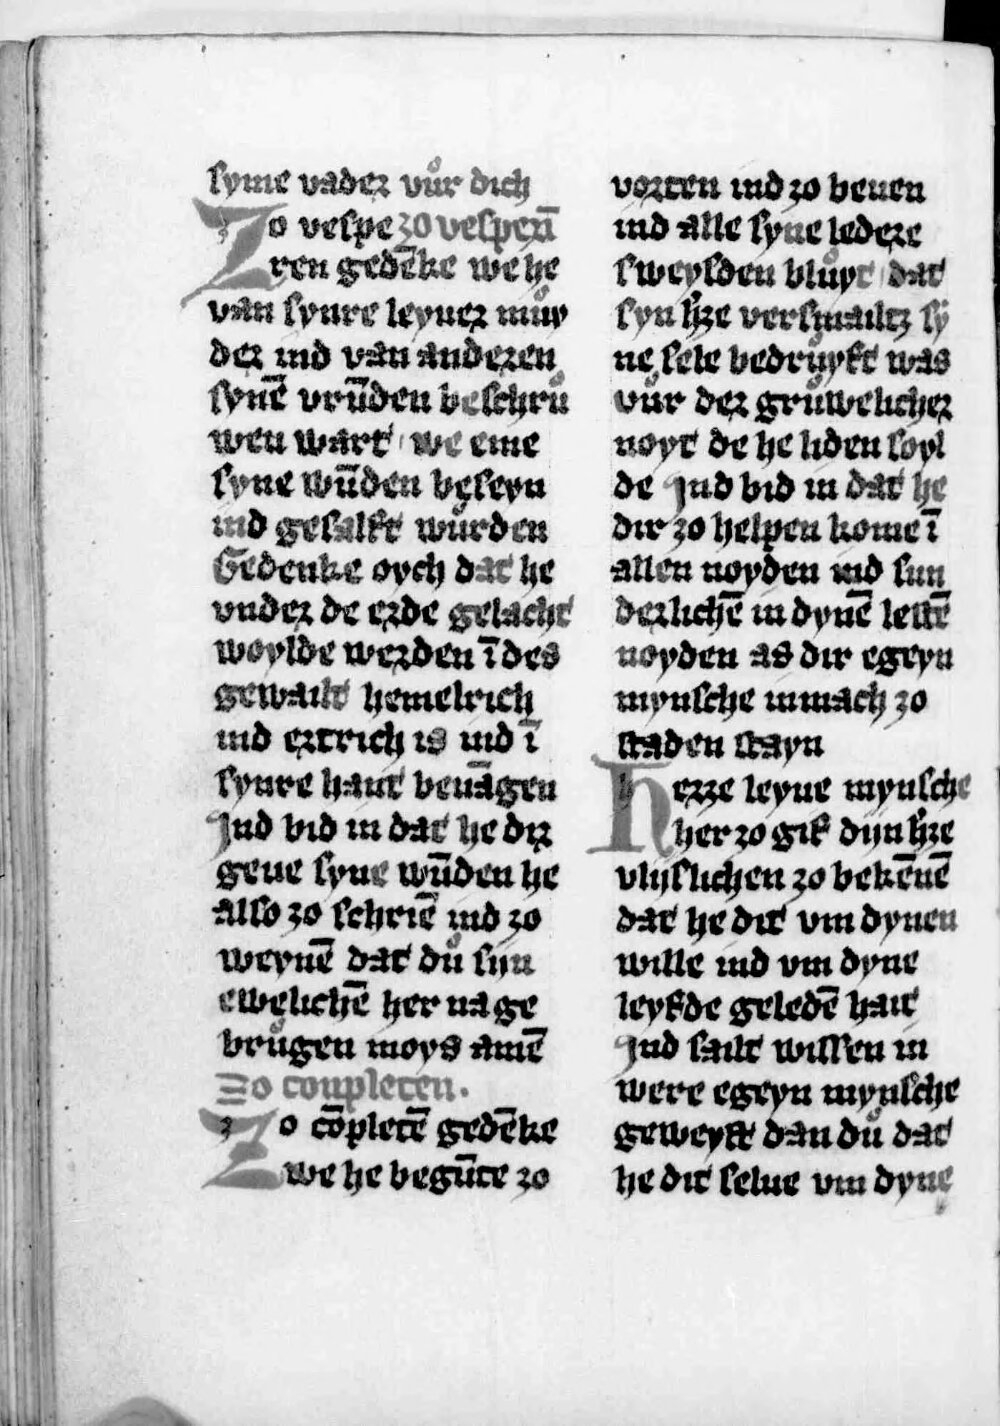 syme vader vuͦr dich
Zo vespe zo vesperē
ren gedēke we he
van synre leyuer muͦy
der ind van anderen
synē vrūden beschruͦ
wen wart we eme
syne wūden beseyn
ind gesalft wuͦrden
Gedenke oych dat he
vnder de erde gelacht
woylde werden ī des
gewailt hemelrich
ind ertrich is ind ī
synre hant beuāgen
Ind bid in dat he dir
geue syne wūden he
also zo schriē ind zo
weynē dat duͦ sijn
ewelichē her na ge
bruͦgen moys amē
Zo conpleten.
Zo cōpletē gedēke
we he begūte zo
vorten ind zo beuen
ind alle syne ledere
sweysden bluͦyt dat
syn h̄ze versmailtz sy
ne sele bedruͦyft was
vuͦr der gruͦwelicher
noyt de he liden soyl
de Ind bid in dat he
dir zo helpen kome ī
allen noyden ind sun
derlichē in dynē lestē
noyden as dir egeyn
mynsche inmach zo
staden stayn
herze leyue mynsche
her zo gif dijn h̄ze
vlijslichen zo bekēnē
dat he dit vm dynen
wille ind vm dyne
leyfde geledē hait
Ind sailt wissen in
were egeyn mynsche
geweyst dan duͦ dat
he dit selue vm dyne